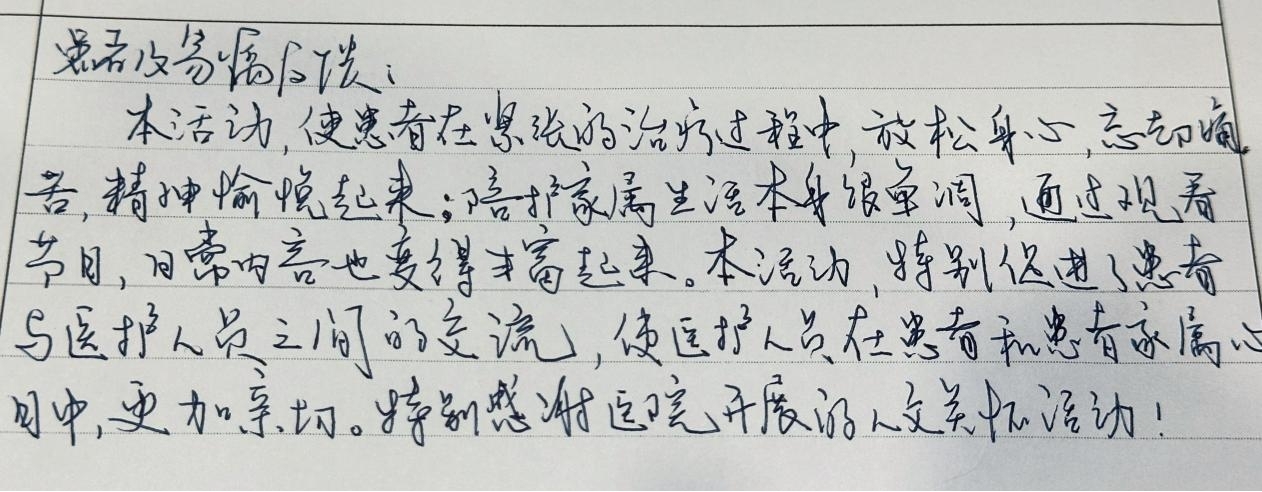 患者及家属反馈：
本活动，使患者在紧张的治疗过程中，放松身心，忘却痛
苦，精神愉悦起来；陪护家属生活本身很单调，通过观看
节目，日常内容也变得丰富起来。本活动，特别促进了患者
与医护人员之间的交流，使医护人员在患者和患者家属心
目中，更加亲切。特别感谢医院开展的人文关怀活动！